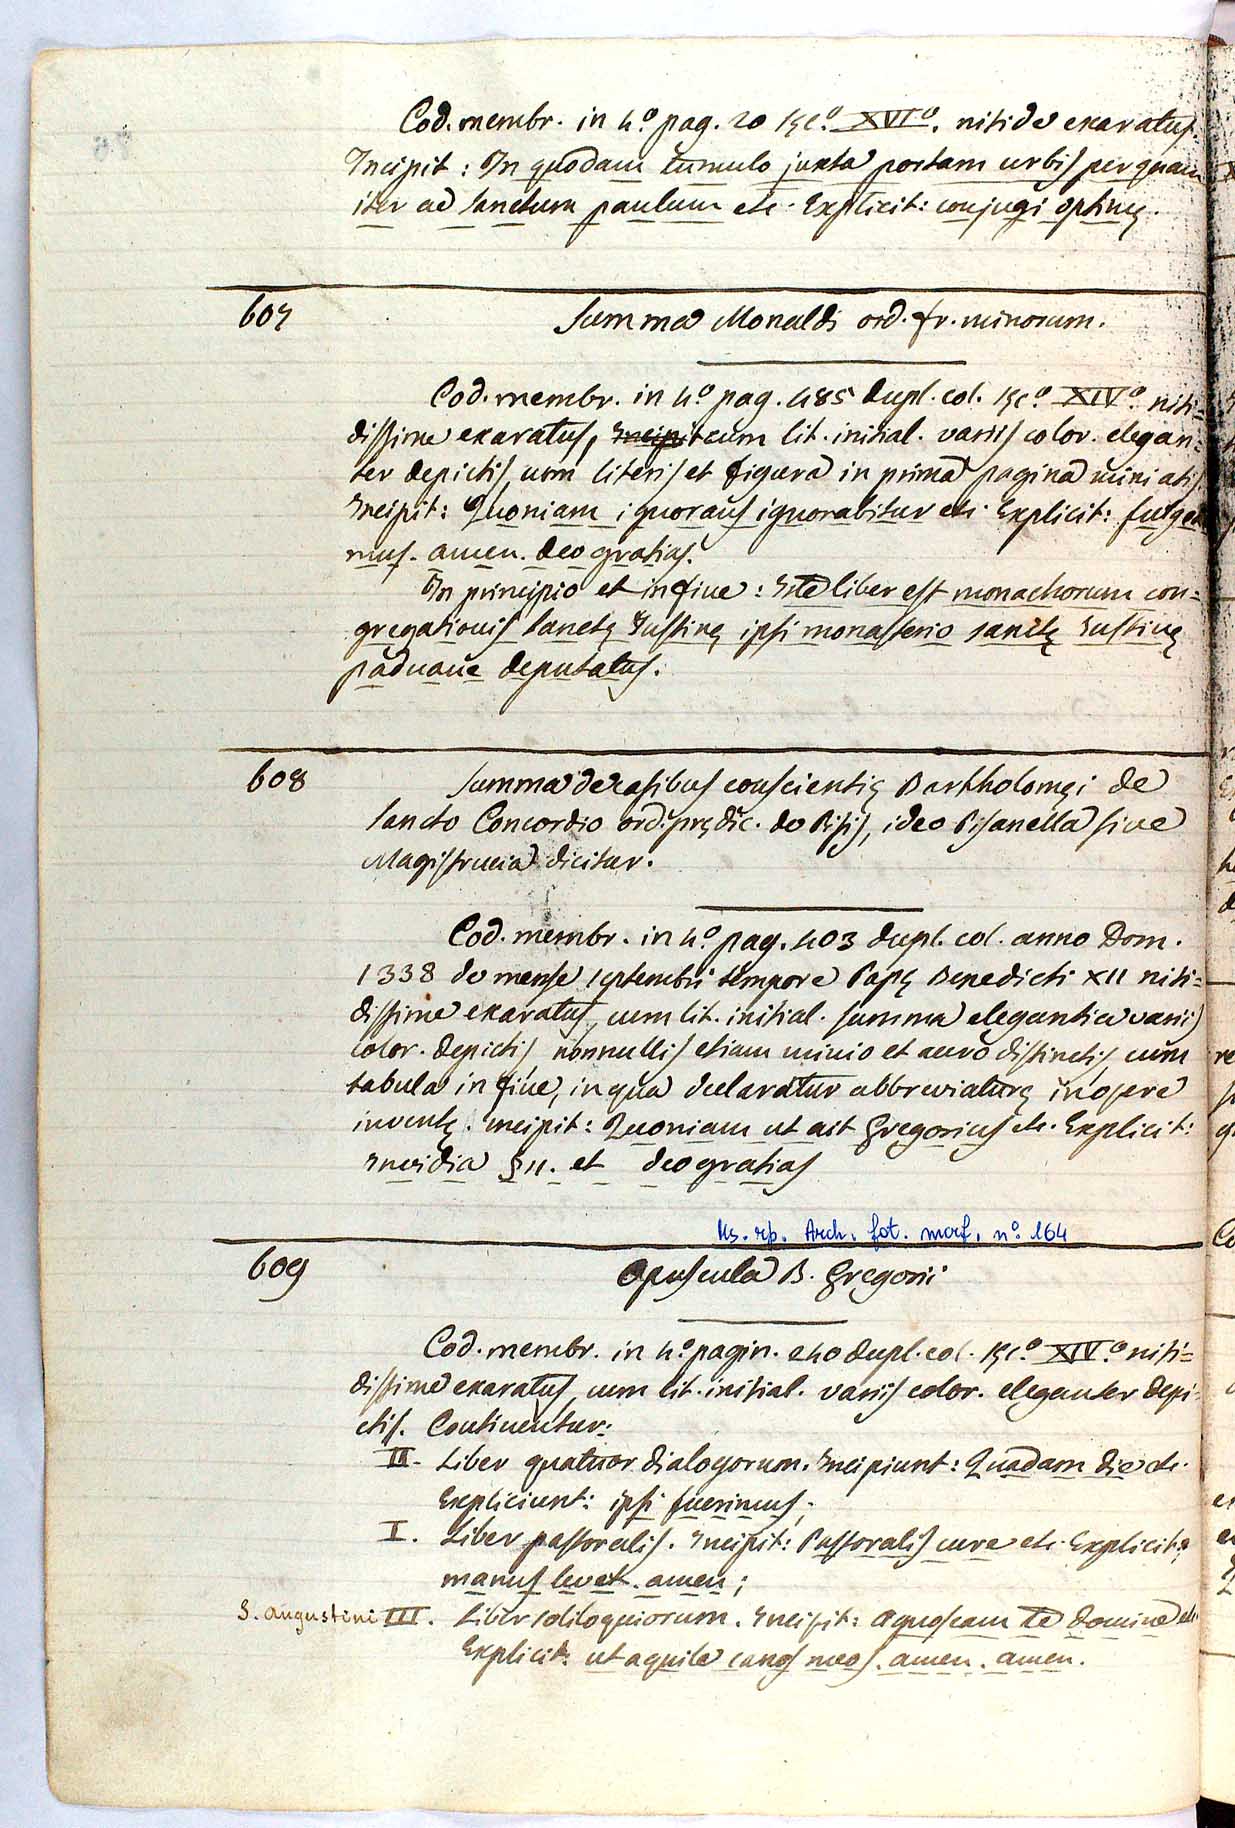 Cod. membr. in 4.º pag. 20 sęc.º XVIº. nitide exaratus.
Incipit: In quodam tumulo juxta portam urbis per quam
iter ad sanctum paulum etc. Explicit: conjugi optimę.
607
Summa Monaldi ord. fr. minorum.
Cod. membr. in 4.º pag. 485 dupl. col. sęc.º XIVº. niti=
dissime exaratus, Incipit cum lit. initial. variis color. elegan=
ter depictis, cum literis et figura in prima pagina miniatis.
Incipit: Quoniam ignorans ignorabitur etc. Explicit: fulgea
mus. amen. deo gratias.
In principio et in fine: Iste liber est monachorum con=
gregationis sanctę Justinę ipsi monasterio sanctę Justinę
paduane deputatus.
608
Summa de casibus conscientię Bartholomęi de
Sancto Concordio ord. prędic. de Pisis, ideo Pisanella sive
Magistrucia dicitur.
Cod. membr. in 4.º pag. 403 dupl. col. anno Dom.
1338 de mense septembri tempore Papę Benedicti XII niti=
dissime exaratus, cum lit. initial. summa elegantia variis
color. depictis, nonnullis etiam minio et auro distinctis, cum
tabula in fine, in qua declarantur abbreviaturę in opere
inventę. Incipit: Quoniam ut ait Gregorius etc. Explicit:
Invidia § II. et deo gratias
Ms. rp. Arch. fot. marf. nº 164
609
Opuscula B. Gregorii
Cod. membr. in 4.º pagin. 240 dupl. col. sęc.º XIV.º niti=
dissime exaratus, cum lit. initial. variis color. eleganter depi=
ctis. Continentur:
II. Liber quatuor dialogorum. Incipiunt: Quadam die etc.
Expliciunt: ipsi fuerimus;
I. Liber pastoralis. Incipit: Pastoralis cure etc. Explicit:
manus levet. amen;
S. Augustini III. Liber soliloquiorum. Incipit: Agnoscam te domine etc.
Explicit: ut aquile canos meos. amen. amen.